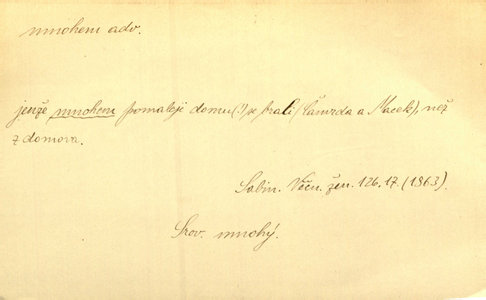 mnohem adv.
jenže mnohem pomaleji domu (!) se brali (Čamrda a Macek), než
z domova.
Sabin. Věčn. žen. 126.17. (1863).
Srov. mnohý.